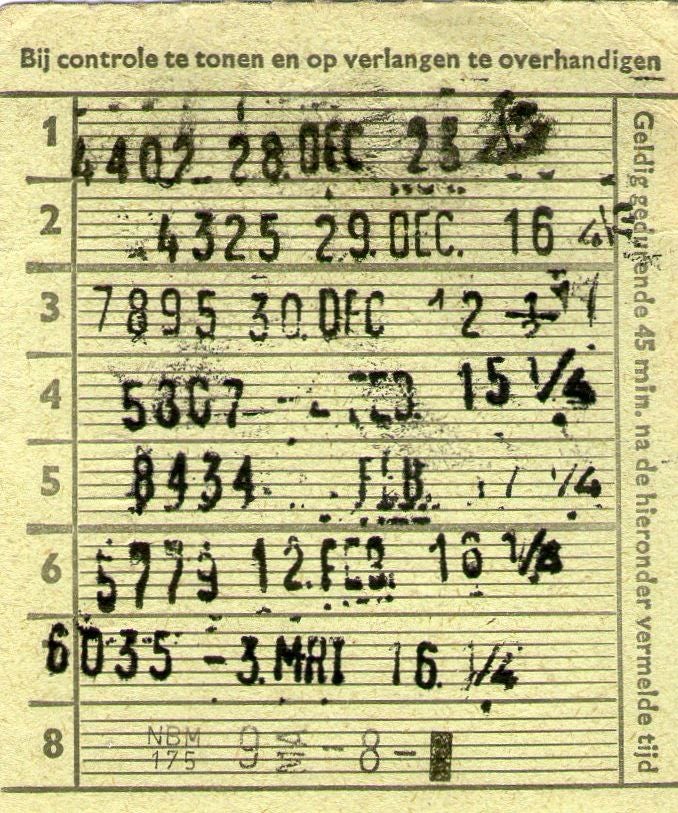 Bij controle te tonen en op verlangen te overhandigen
1 4402 28.DEC 23
2 4325 29.DEC. 16
3 7895 30.DEC 12
4 FEB. 15 1/4
5 8434 FEB. 1/4
6 5779 12.FEB. 16
6035 -3.MRT 16. 1/4
8 NBM 175 9 - 8 -
Geldig gedurende 45 min. na de hieronder vermelde tijd